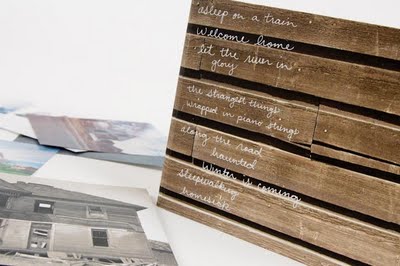 asleep on a train
Welcome home
let the river in
glory
the strangest things
wrapped in piano strings
along the road
haunted
Winter is coming
sleepwalking
homesick